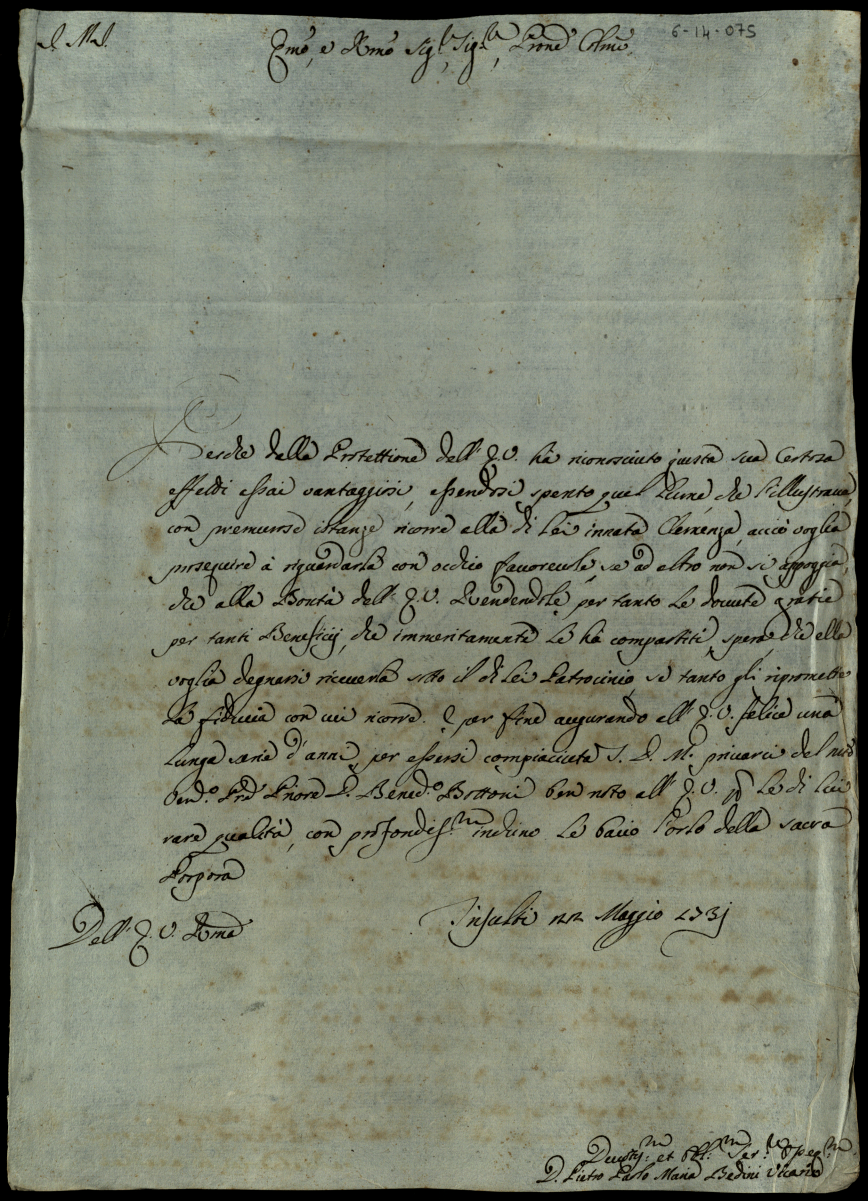 J. M. J.
6-14-075
Emo, e Rmo Sigr, Sigr, Prone Colmo
Perche dalla Protettione dell' E. V. hà riconosciuto questa sua Certosa
effetti assai vantaggiosi, essendosi spento quel Lume, che l'illustrava,
con premurose istanze ricorre allà di Lei innata Clemenza, acciò voglia
proseguire à riguardarla con occhio favorevole, se ad altro non si appoggia,
che alla Bontà dell' E. V. Rendendole per tanto le dovute gratie
per tanti Beneficij, che immeritamente Le ha compartiti, spera, che ella
voglia degnarsi riceverla sotto il di Lei Patrocinio, se tanto gli ripromette
La fiducia con cui ricorre. E per fine augurando all' E. V. felice una
Lunga serie d'anni, per essersi compiaciuta S. D. M. privarci del nro
Vendo Pre Priore D. Bened.o Bottoni ben noto all' E. V. p Le di Lui
rare qualità, con profondiss.mo inchino Le bacio l'orlo della sacra
Porpora
Dell' E. V. Rma
Trisulti 22 Maggio 1731
Devotiss.mo et Obl.mo Ser.re Osseq.mo
D. Pietro Paolo Maria Bedini Vicario